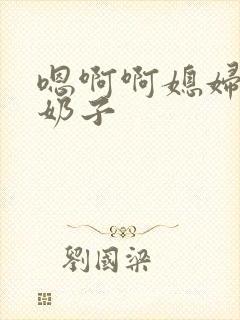 嗯啊啊媳妇
奶子
劉國梁